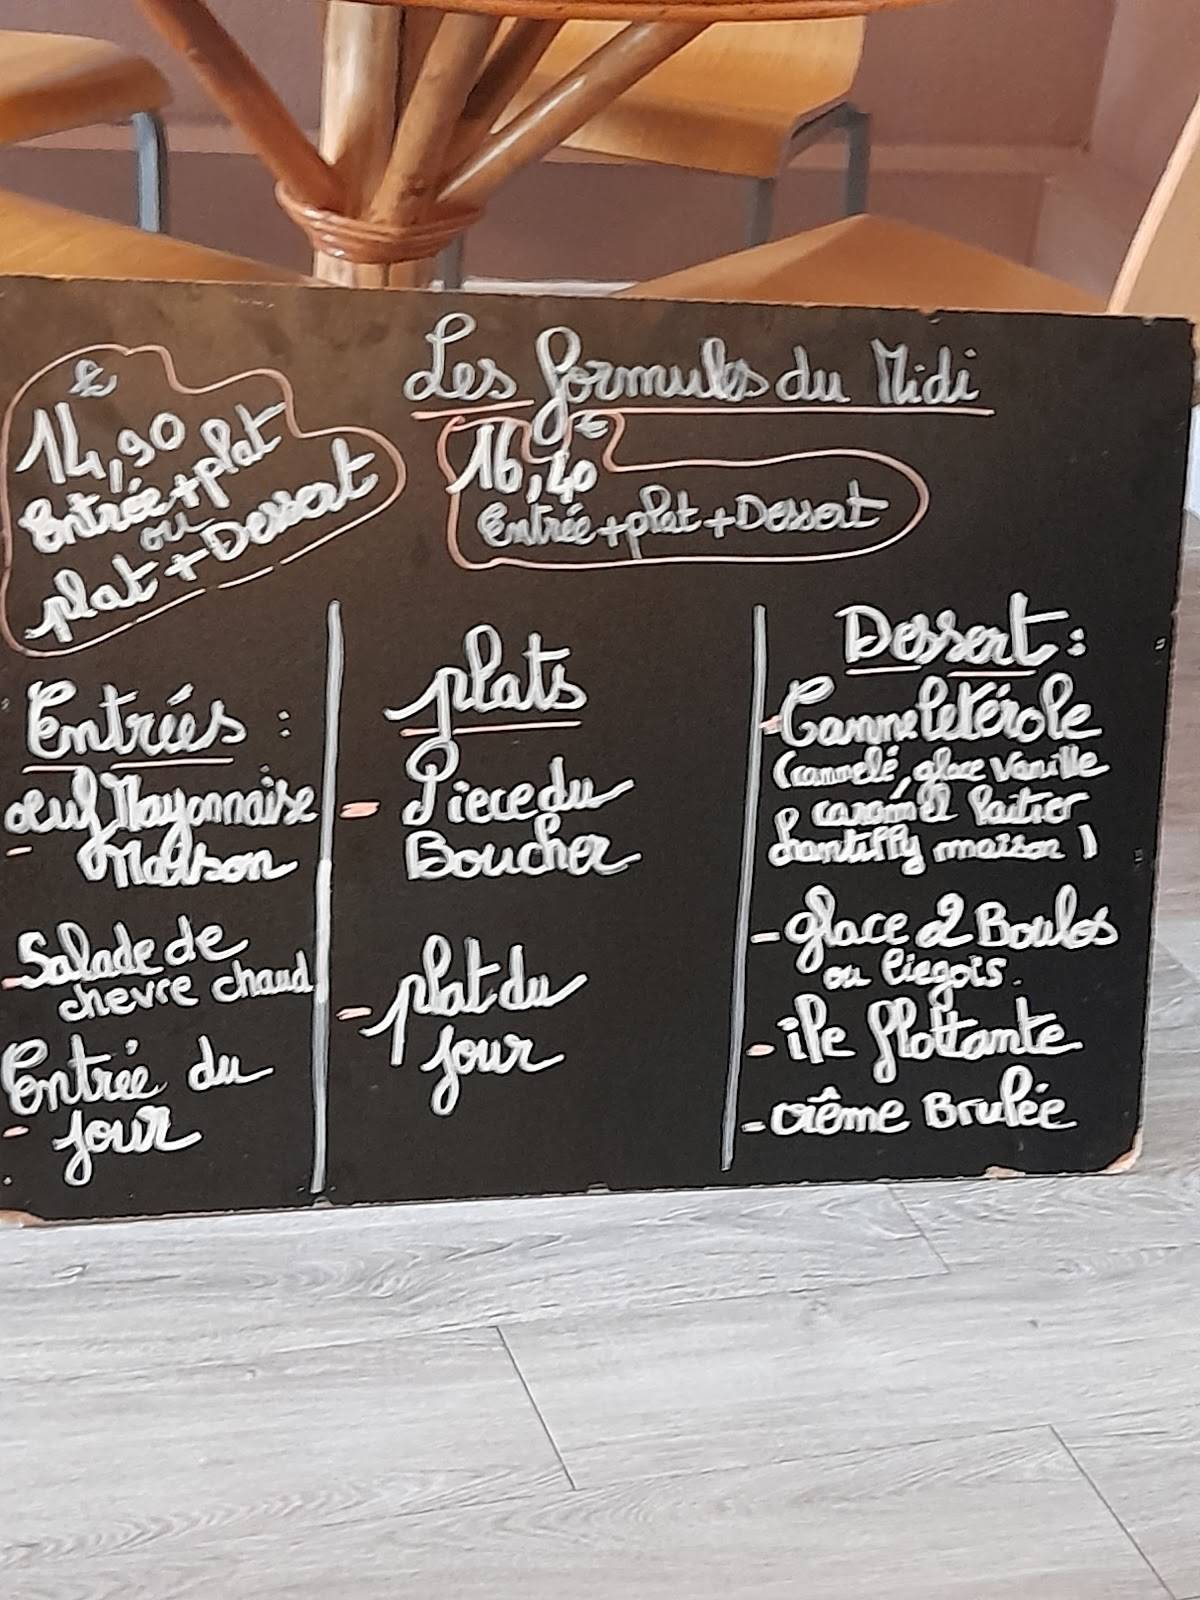 Les formules du Midi
€
14,90
Entrée + plat
ou
plat + Dessert
€
16,40
Entrée + plat + Dessert
Entrées :
œuf Mayonnaise
- Maison
- Salade de
chevre chaud
Entrée du
- jour
plats
- Piece du
Boucher
- plat du
jour
Dessert :
- Canneletérole
(cannelé, glace vanille
caramel laitier
chantilly maison)
- glace 2 Boules
ou liegois.
- ile flottante
- crême Brulée